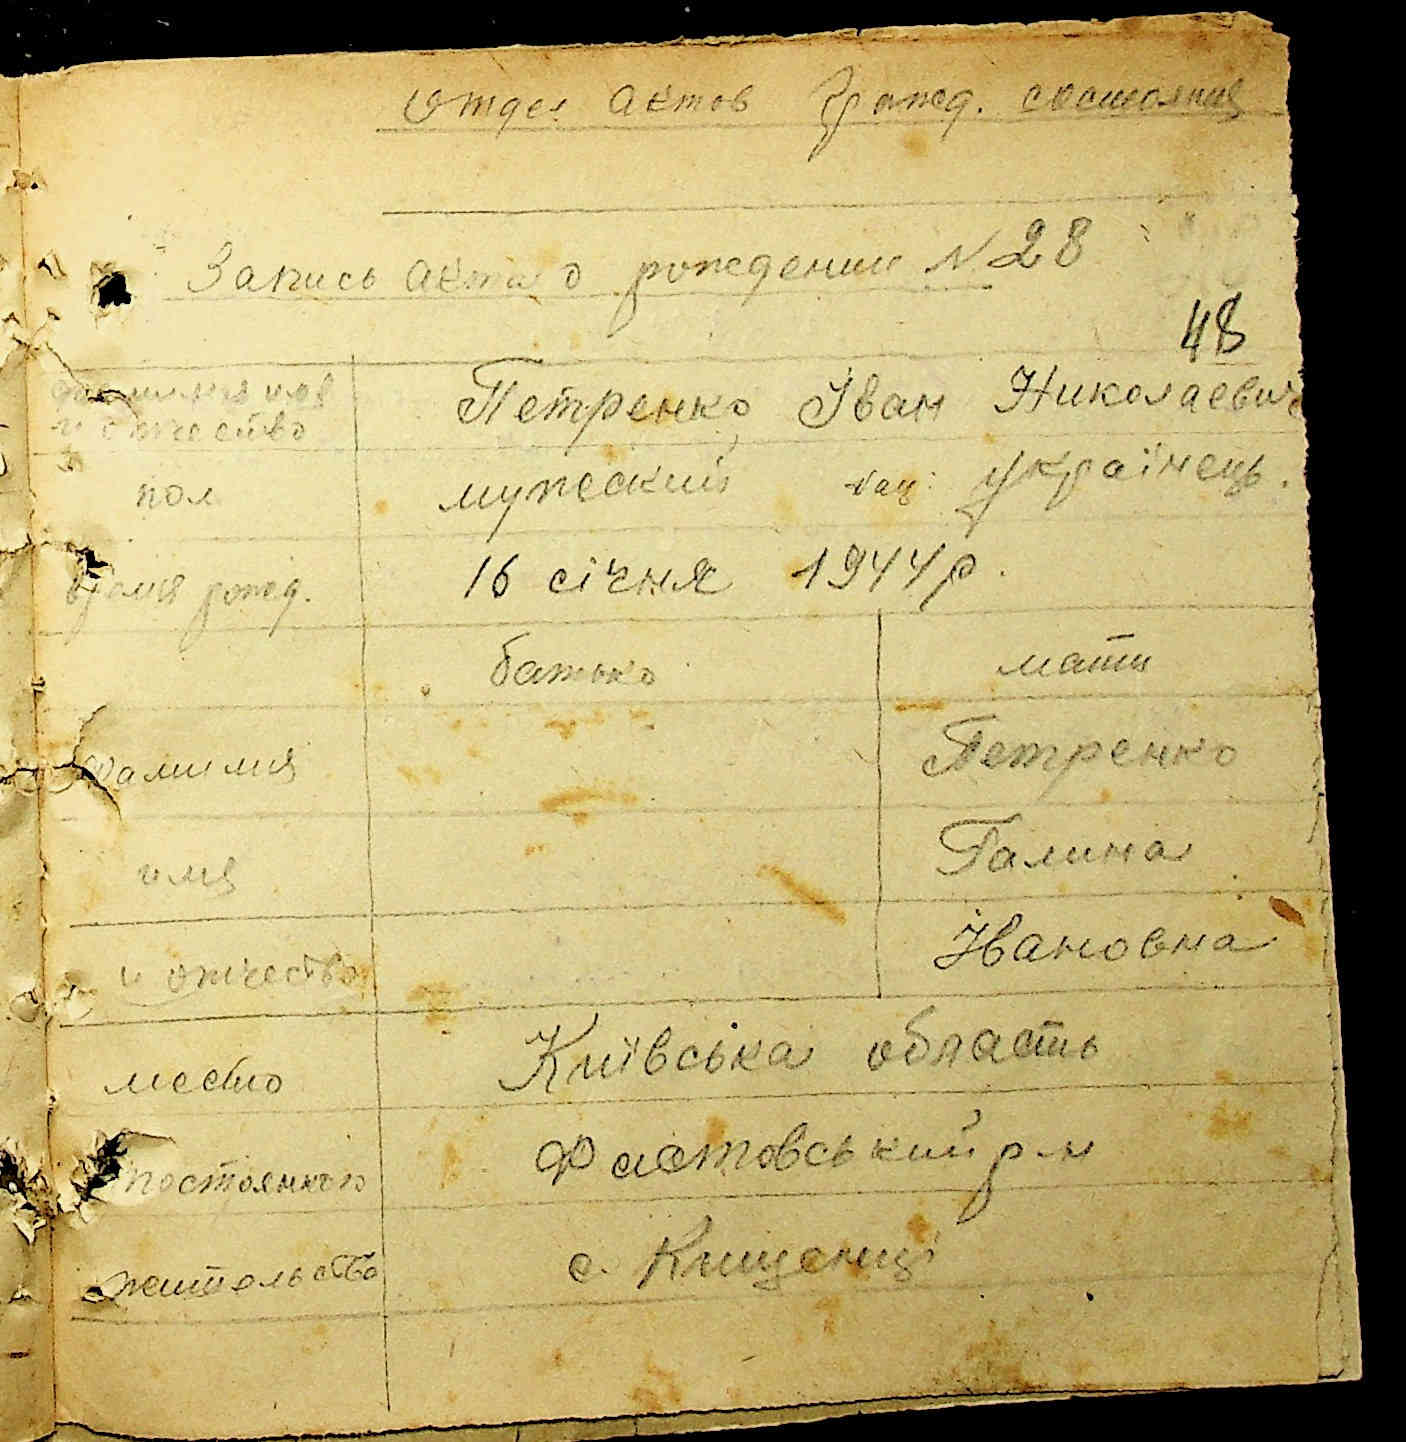 Отдел актов гражд. состояния
Запись акта о рождении N 28
48
фамилия имя Петренко Іван Николаевич
и отчество
пол мужский нац. українець.
время рожд. 16 січня 1944 р.
батько мати
фамилия Петренко
имя Галина
и отчество Івановна
место Київська область
постоянного Фастовський р-н
жительства с. Кищенці